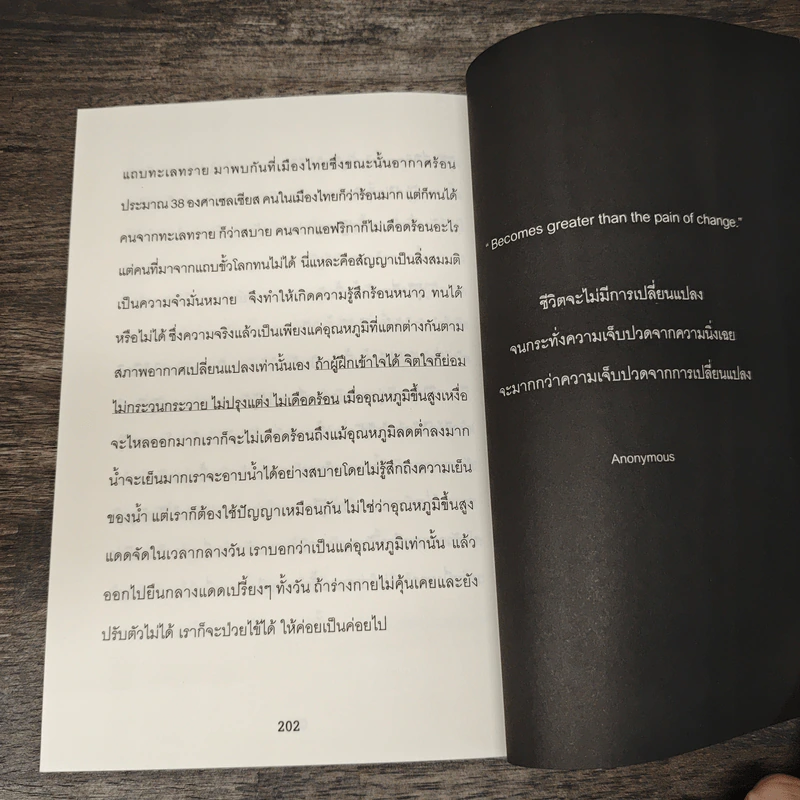 แถบทะเลทราย มาพบกันที่เมืองไทยซึ่งขณะนั้นอากาศร้อน
ประมาณ 38 องศาเซลเซียส คนในเมืองไทยก็ว่าร้อนมาก แต่ก็ทนได้
คนจากทะเลทราย ก็ว่าสบาย คนจากแอฟริกาก็ไม่เดือดร้อนอะไร
แต่คนที่มาจากแถบขั้วโลกทนไม่ได้ นี่แหละคือสัญญาเป็นสิ่งสมมติ
เป็นความจำมั่นหมาย จึงทำให้เกิดความรู้สึกร้อนหนาว ทนได้
หรือไม่ได้ ซึ่งความจริงแล้วเป็นเพียงแค่อุณหภูมิที่แตกต่างกันตาม
สภาพอากาศเปลี่ยนแปลงเท่านั้นเอง ถ้าผู้ฝึกเข้าใจได้ จิตใจก็ย่อม
ไม่กระวนกระวาย ไม่ปรุงแต่ง ไม่เดือดร้อน เมื่ออุณหภูมิขึ้นสูงเหงื่อ
จะไหลออกมากเราก็จะไม่เดือดร้อนถึงแม้อุณหภูมิลดต่ำลงมาก
น้ำจะเย็นมากเราจะอาบน้ำได้อย่างสบายโดยไม่รู้สึกถึงความเย็น
ของน้ำ แต่เราก็ต้องใช้ปัญญาเหมือนกัน ไม่ใช่ว่าอุณหภูมิขึ้นสูง
แดดจัดในเวลากลางวัน เราบอกว่าเป็นแค่อุณหภูมิเท่านั้น แล้ว
ออกไปยืนกลางแดดเปรี้ยงๆ ทั้งวัน ถ้าร่างกายไม่คุ้นเคยและยัง
ปรับตัวไม่ได้ เราก็จะป่วยไข้ได้ ให้ค่อยเป็นค่อยไป
202
“Becomes greater than the pain of change.”
ชีวิตจะไม่มีการเปลี่ยนแปลง
จนกระทั่งความเจ็บปวดจากความนิ่งเฉย
จะมากกว่าความเจ็บปวดจากการเปลี่ยนแปลง
Anonymous